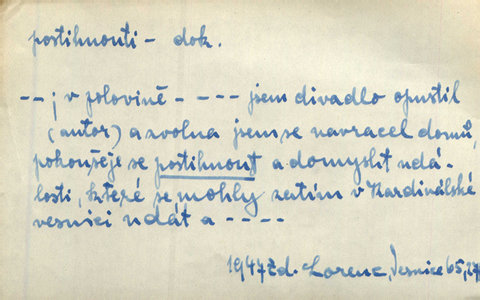 postihnouti - dok.
--; v polovině - --- jsem divadlo opustil
(autor) a zvolna jsem se navracel domů,
pokoušeje se postihnout a domyslit udá-
losti, které se mohly zatím v Kardinálské
vesnici udát a ----
1947 Zd. Lorenc, Vesnice 65, 27